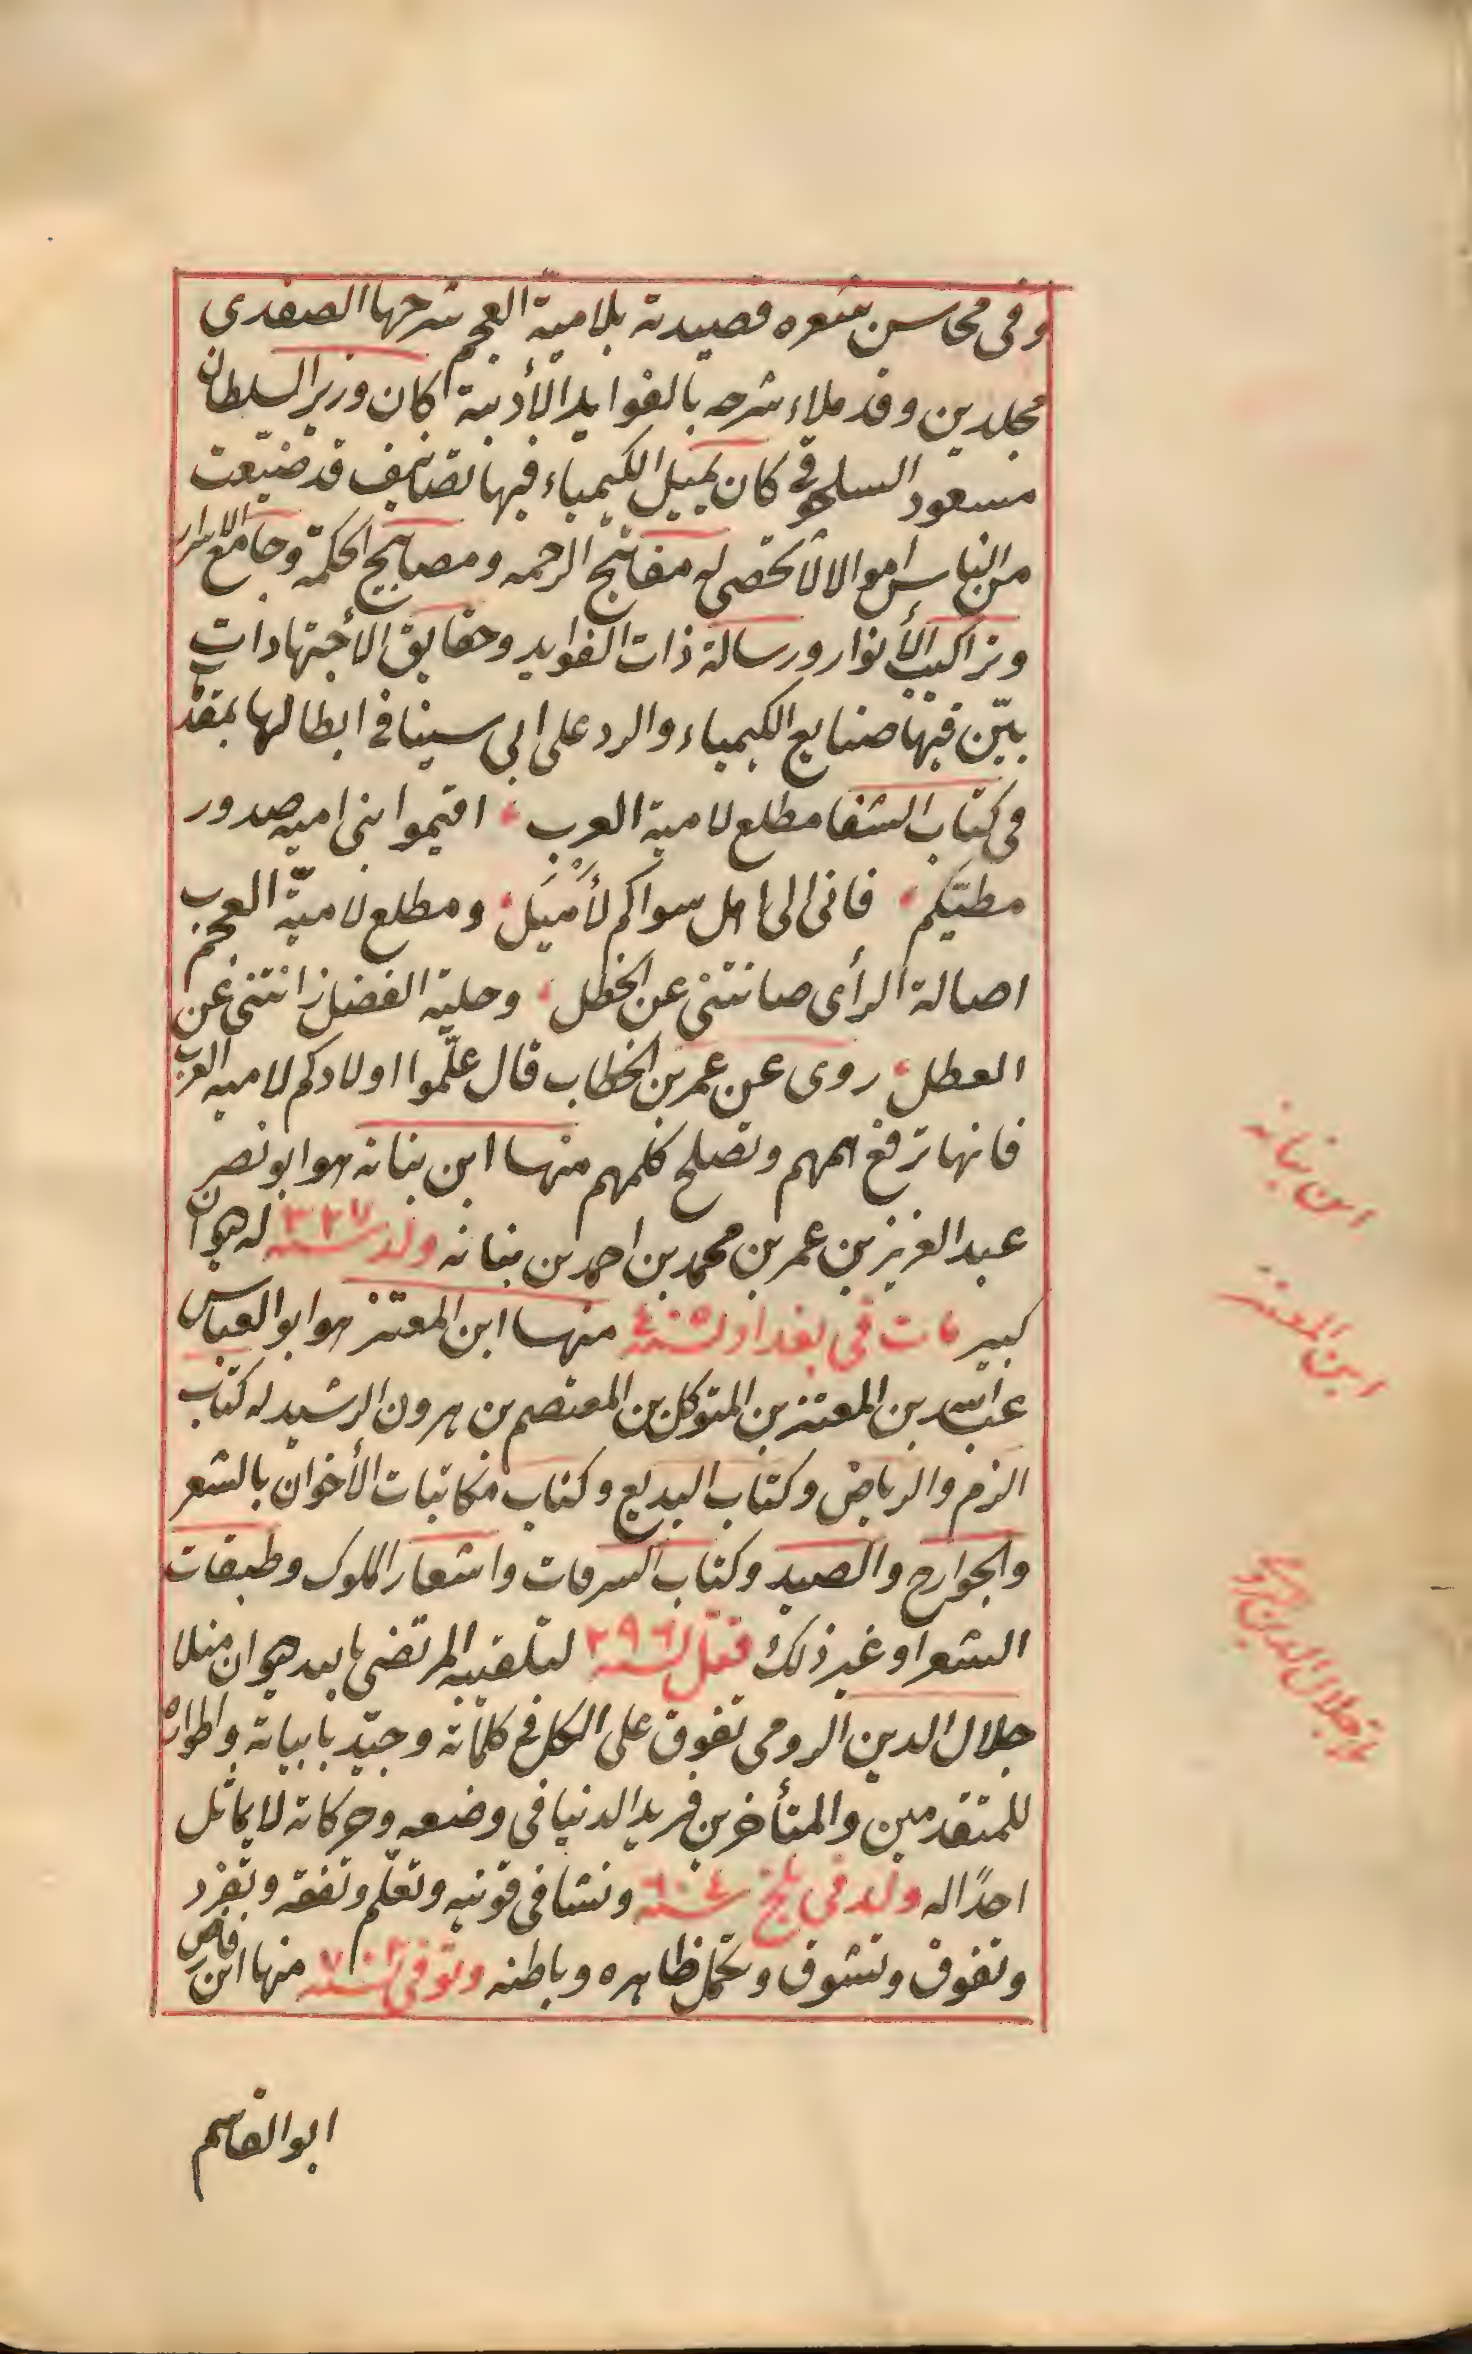 وفى محاسن شعره قصيدته بلامية العجم شرحها الصفدى
مجلدين وقد ملاء شرحه بالفوايد الأدبية كان وزير السلطان
مسعود السلجوقى كان يميل الكيمياء فيها تصانيف قد ضيّعت
من الناس اموالا لا تحصى له مفاتيح الرحمه ومصابيح الحكمة وجامع الاسرار
وتراكيب الأنوار ورسالة ذات الفوايد وحقايق الأجتهادات
بيّن فيها صنايع الكيمياء والرد على ابى سينا فى ابطالها بمقدّمة
فى كتاب الشفا مطلع لامية العرب اقيموا بنى اميه صدور
مطيّكم فانى الى اهل سواكم لأَمْيَل ومطلع لاميّة العجم
اصالة الرأى صانتنى عن الخطل وحلية الفضل زانتنى عن
العطل روى عن عمر بن الخطاب قال علّموا اولادكم لاميه العرب
فانها ترفع همهم وتصلح كلمهم منها ابن نباته هو ابو نصر
عبد العزيز بن عمر بن محمد بن احمد بن نباته ولد سنه ٣٢٧ له ديوان
كبير مات فى بغداد سنه ٤٠٥ منها ابن المعتز هو ابو العباس
عبد الله بن المعتز بن المتوكل بن المعتصم بن هرون الرشيد له كتاب
الزهر والرياض وكتاب البديع وكتاب مكاتبات الأخوان بالشعر
والجوارح والصيد وكتاب السرقات واشعار الملوك وطبقات
الشعرا وغير ذلك قتل سنه ٢٩٦ لتلقيبه المرتضى بالله ديوان منلا
جلال الدين الرومى تفوق على الكل فى كلماته وجيّد بابياته واطواره
للمتقدمين والمتأخرين فريد الدنيا فى وضعه وحركاته لا يماثل
احدًا له ولد فى بلخ سنه ٦٠٤ ونشا فى قونيه وتعلّم وتفقه وتفرّد
وتفوق وتشوق وتجمل ظاهره وباطنه وتوفى سنه ٧٠٢ منها ابن قاض
ابو القاسم
ابن نباته
ابن المعتز